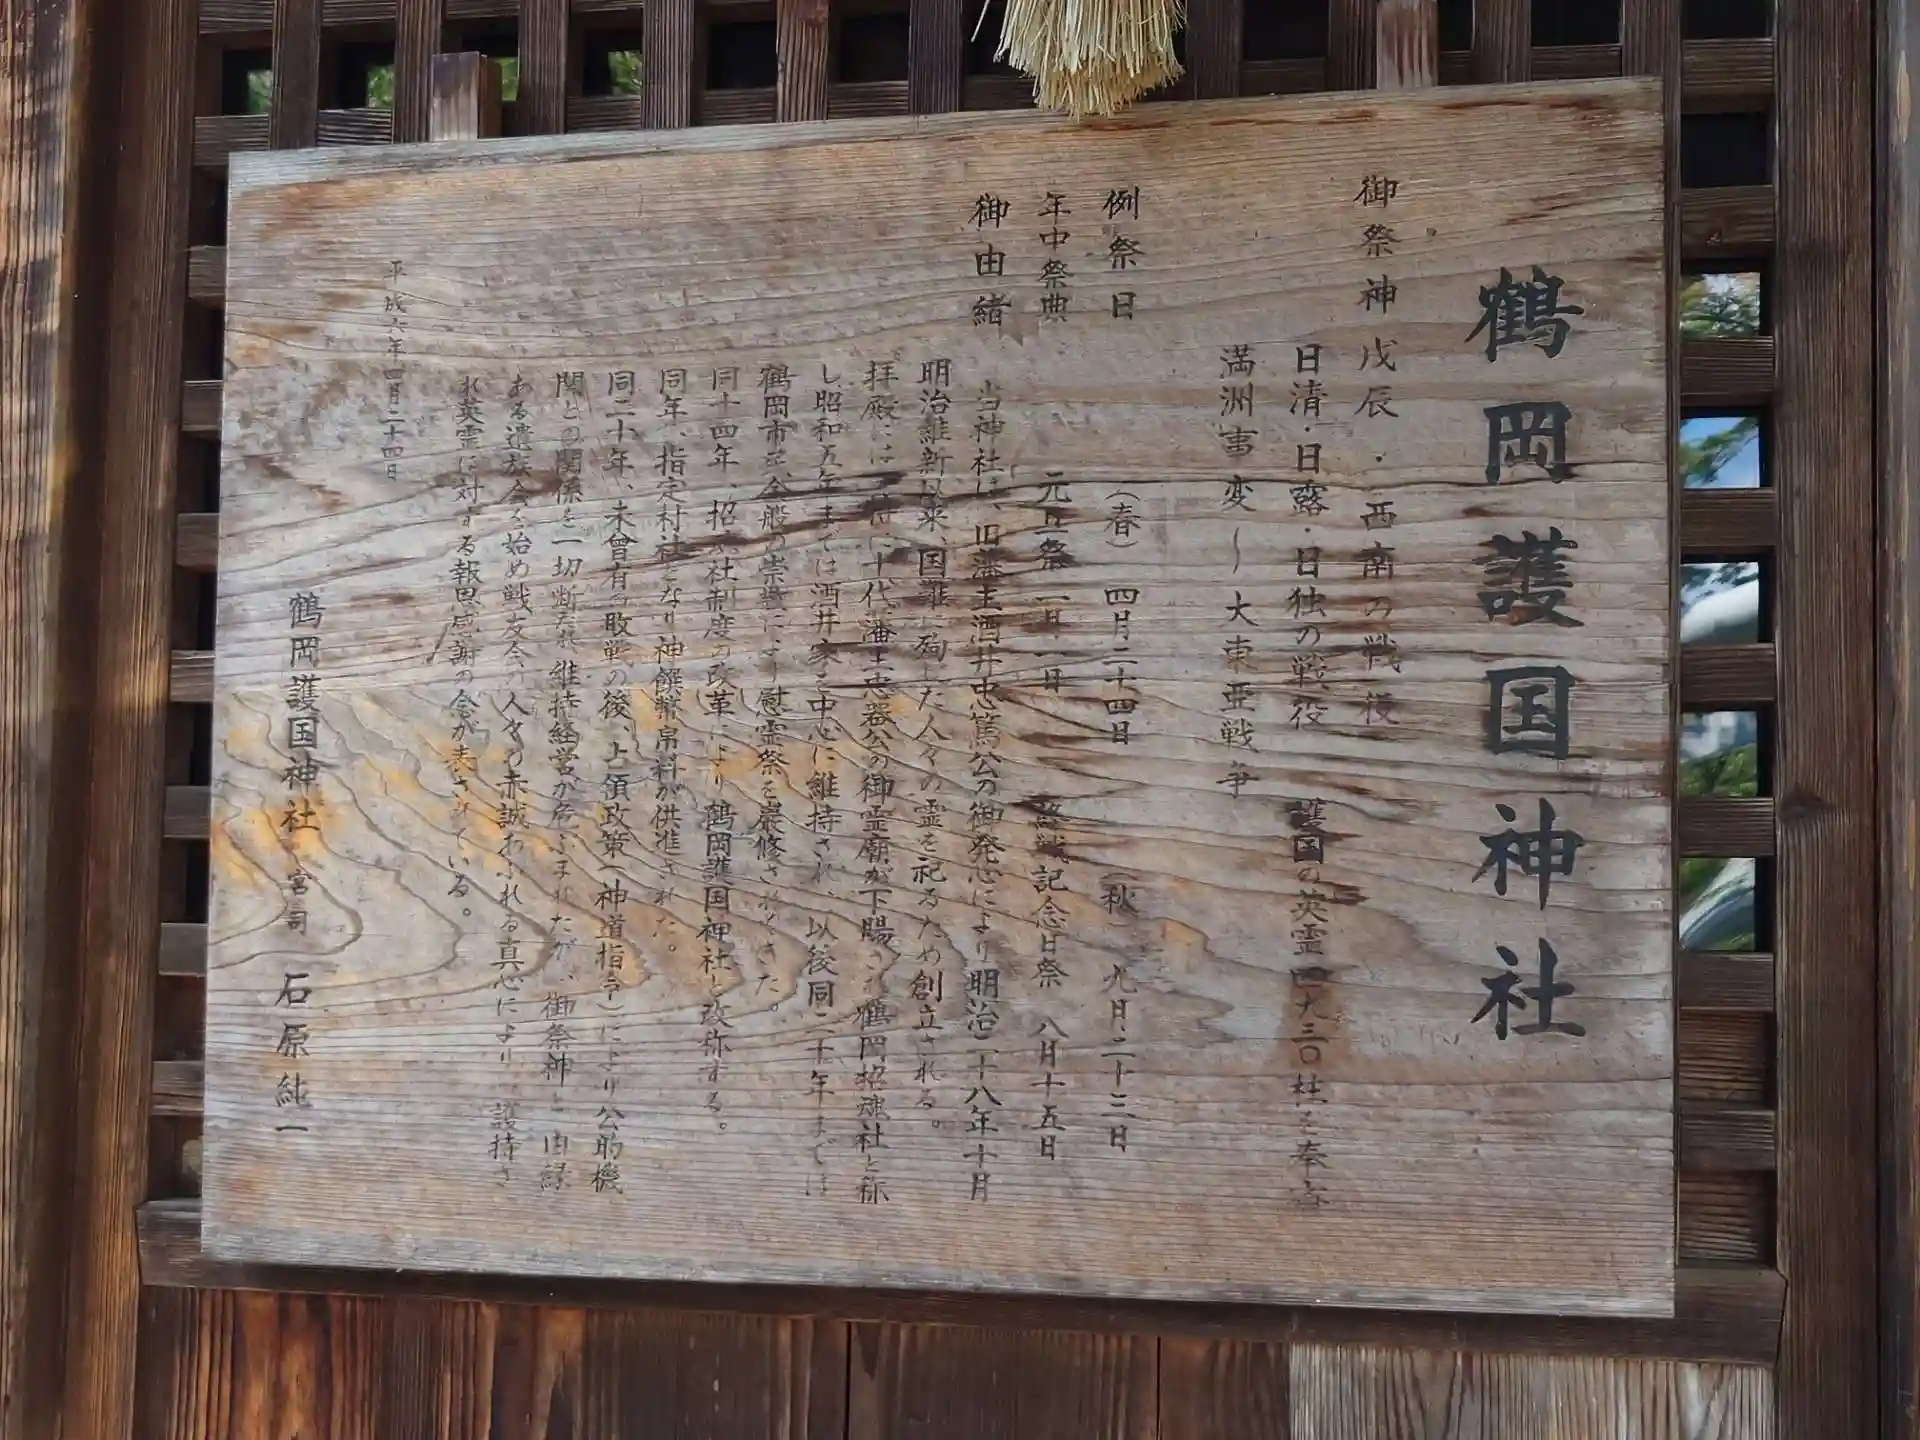 鶴岡護国神社
御祭神 戊辰・西南の戦役
日清・日露・日独の戦役
護国の英霊四九三〇柱を奉斎
満洲事変〜大東亜戦争
例祭日 (春) 四月二十四日 (秋) 九月二十三日
年中祭典 元旦祭 一月一日 終戦記念日祭 八月十五日
御由緒
当神社は、旧藩主酒井忠篤公の御発念により明治二十八年十月
明治維新以来、国難に殉じた人々の霊を祀るため創立される。
拝殿には 十代藩主忠器公の御霊廟が下賜され鶴岡招魂社と称
し昭和五年までは酒井家を中心に維持され、以後同二十年までは
鶴岡市 全般の崇敬により慰霊祭を厳修されてきた。
同十四年、招魂社制度の改革により鶴岡護国神社と改称する。
同年、指定村社となり神饌幣帛料が供進された。
同二十年、未曾有の敗戦の後、占領政策(神道指令)により公的機
関との関係を一切断たれ維持経営が危ぶまれたが、御祭神と由縁
ある遺族会を始め戦友会の人々の赤誠あふれる真心により護持さ
れ英霊に対する報恩感謝の念が表されている。
平成六年四月二十四日
鶴岡護国神社 宮司 石原純一